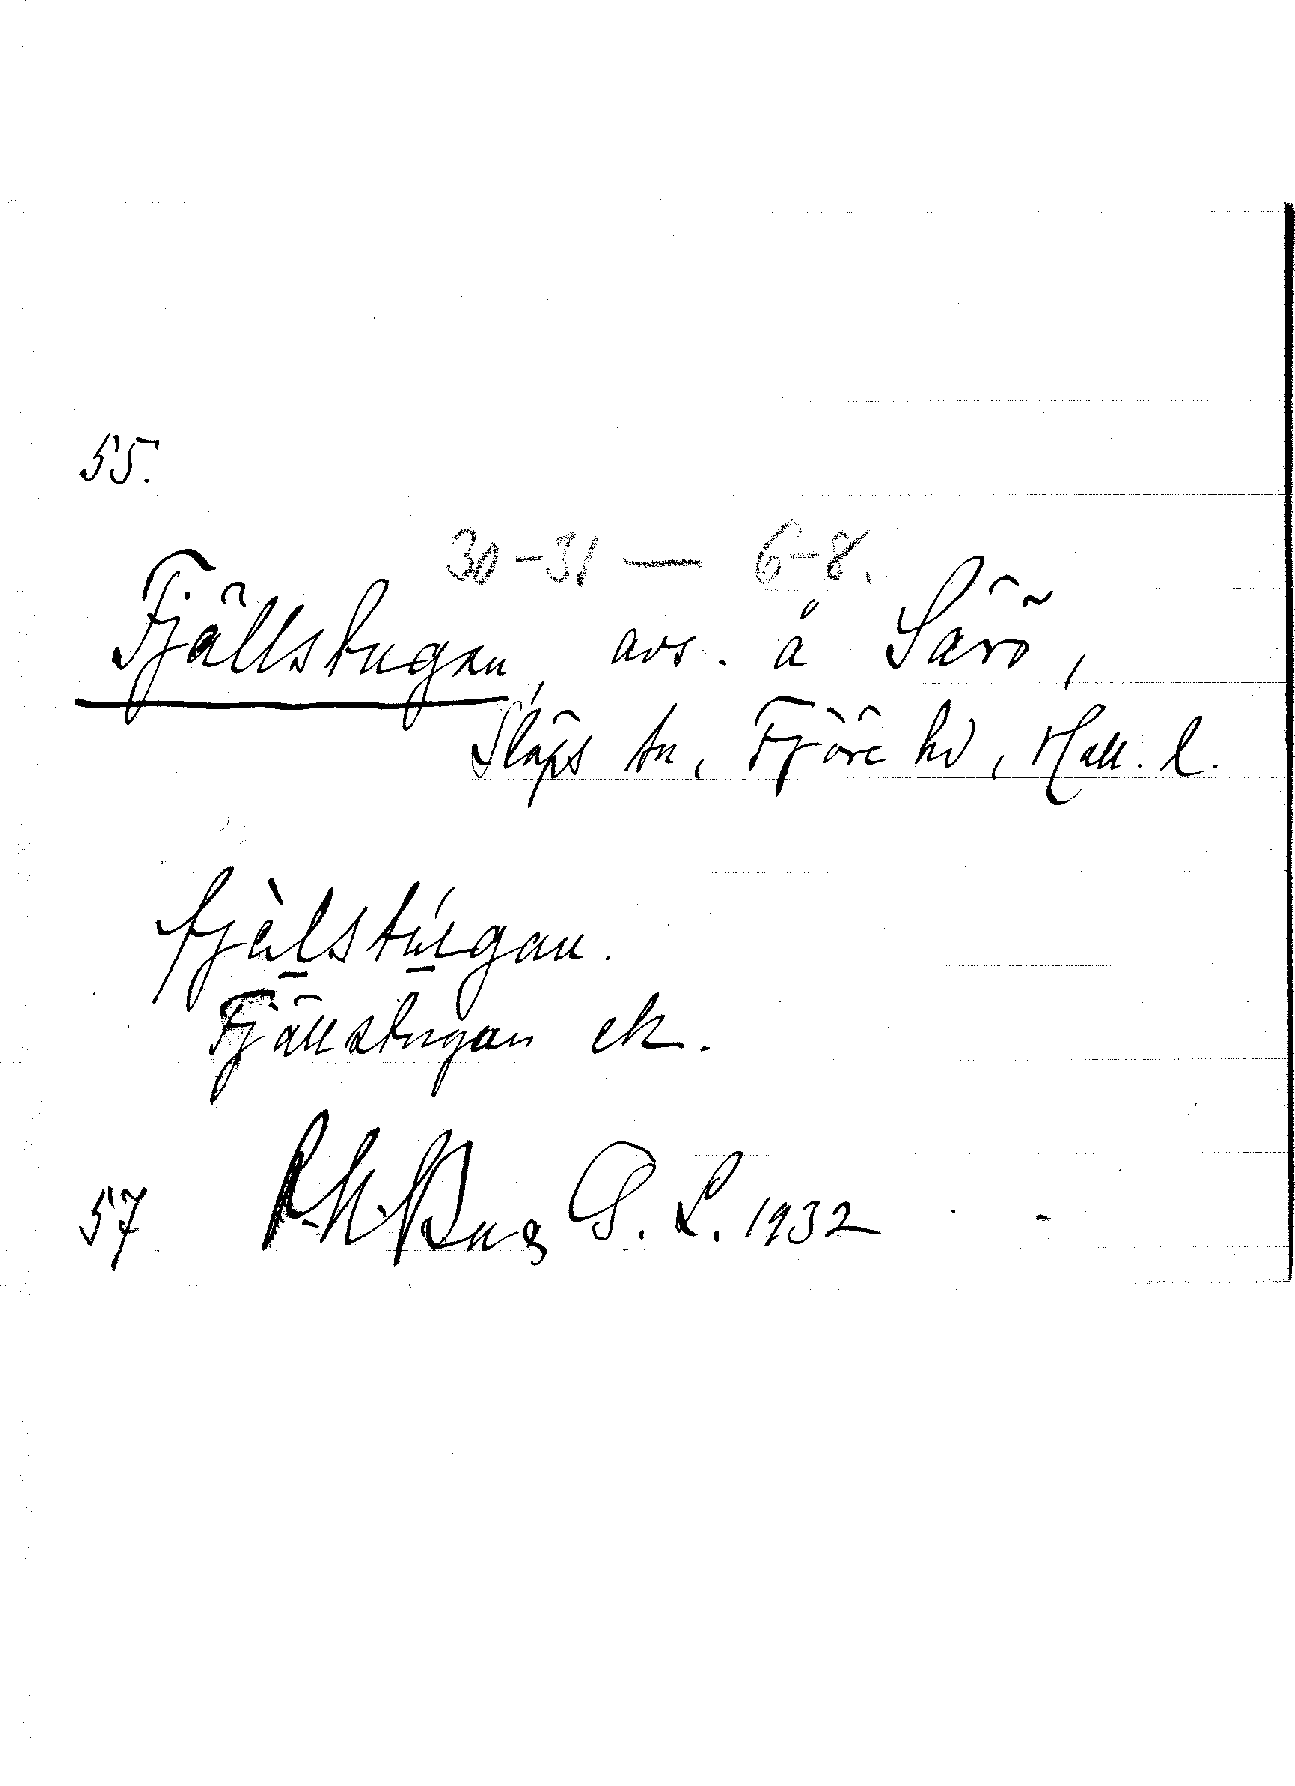 55.
30-31 — 6-8.
Fjällstugan, avs. å Särö,
Släps sn, Fjäre hd, Hall. l.
fjälstugan.
Fjällstugan ek.
57 G. L. 1932